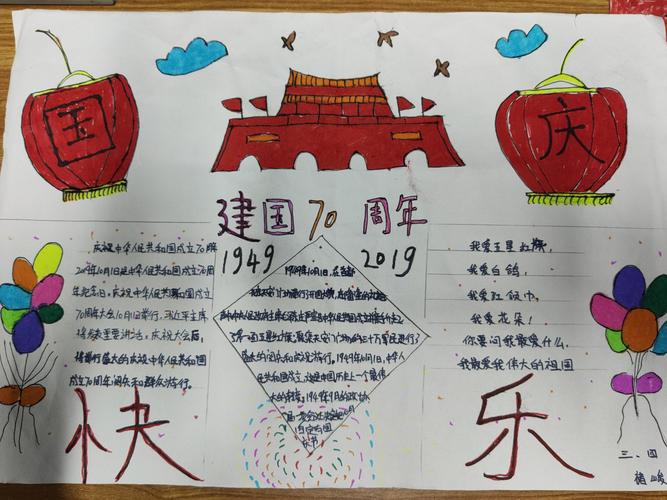 国
庆
建国70周年
1949
2019
庆祝中华人民共和国成立70周
2019年10月1日是中华人民共和国成立70周
年纪念日。庆祝中华人民共和国成立
70周年大会10月1日举行。习近平主席
将发表重要讲话。庆祝大会后,
将举行盛大的庆祝中华人民共和国
成立70周年阅兵和群众游行。
1949年10月1日,在首都
三十万军民进行了
盛大的阅兵和庆祝游行。1949年10月1日,中华人
民共和国成立,这是中国历史上一个最伟
大的转变。1949年9月的政协
我爱五星红旗,
我爱白鸽,
我爱红领巾,
我爱花朵!
你要问我最爱什么,
我最爱我伟大的祖国
快
乐
三、四